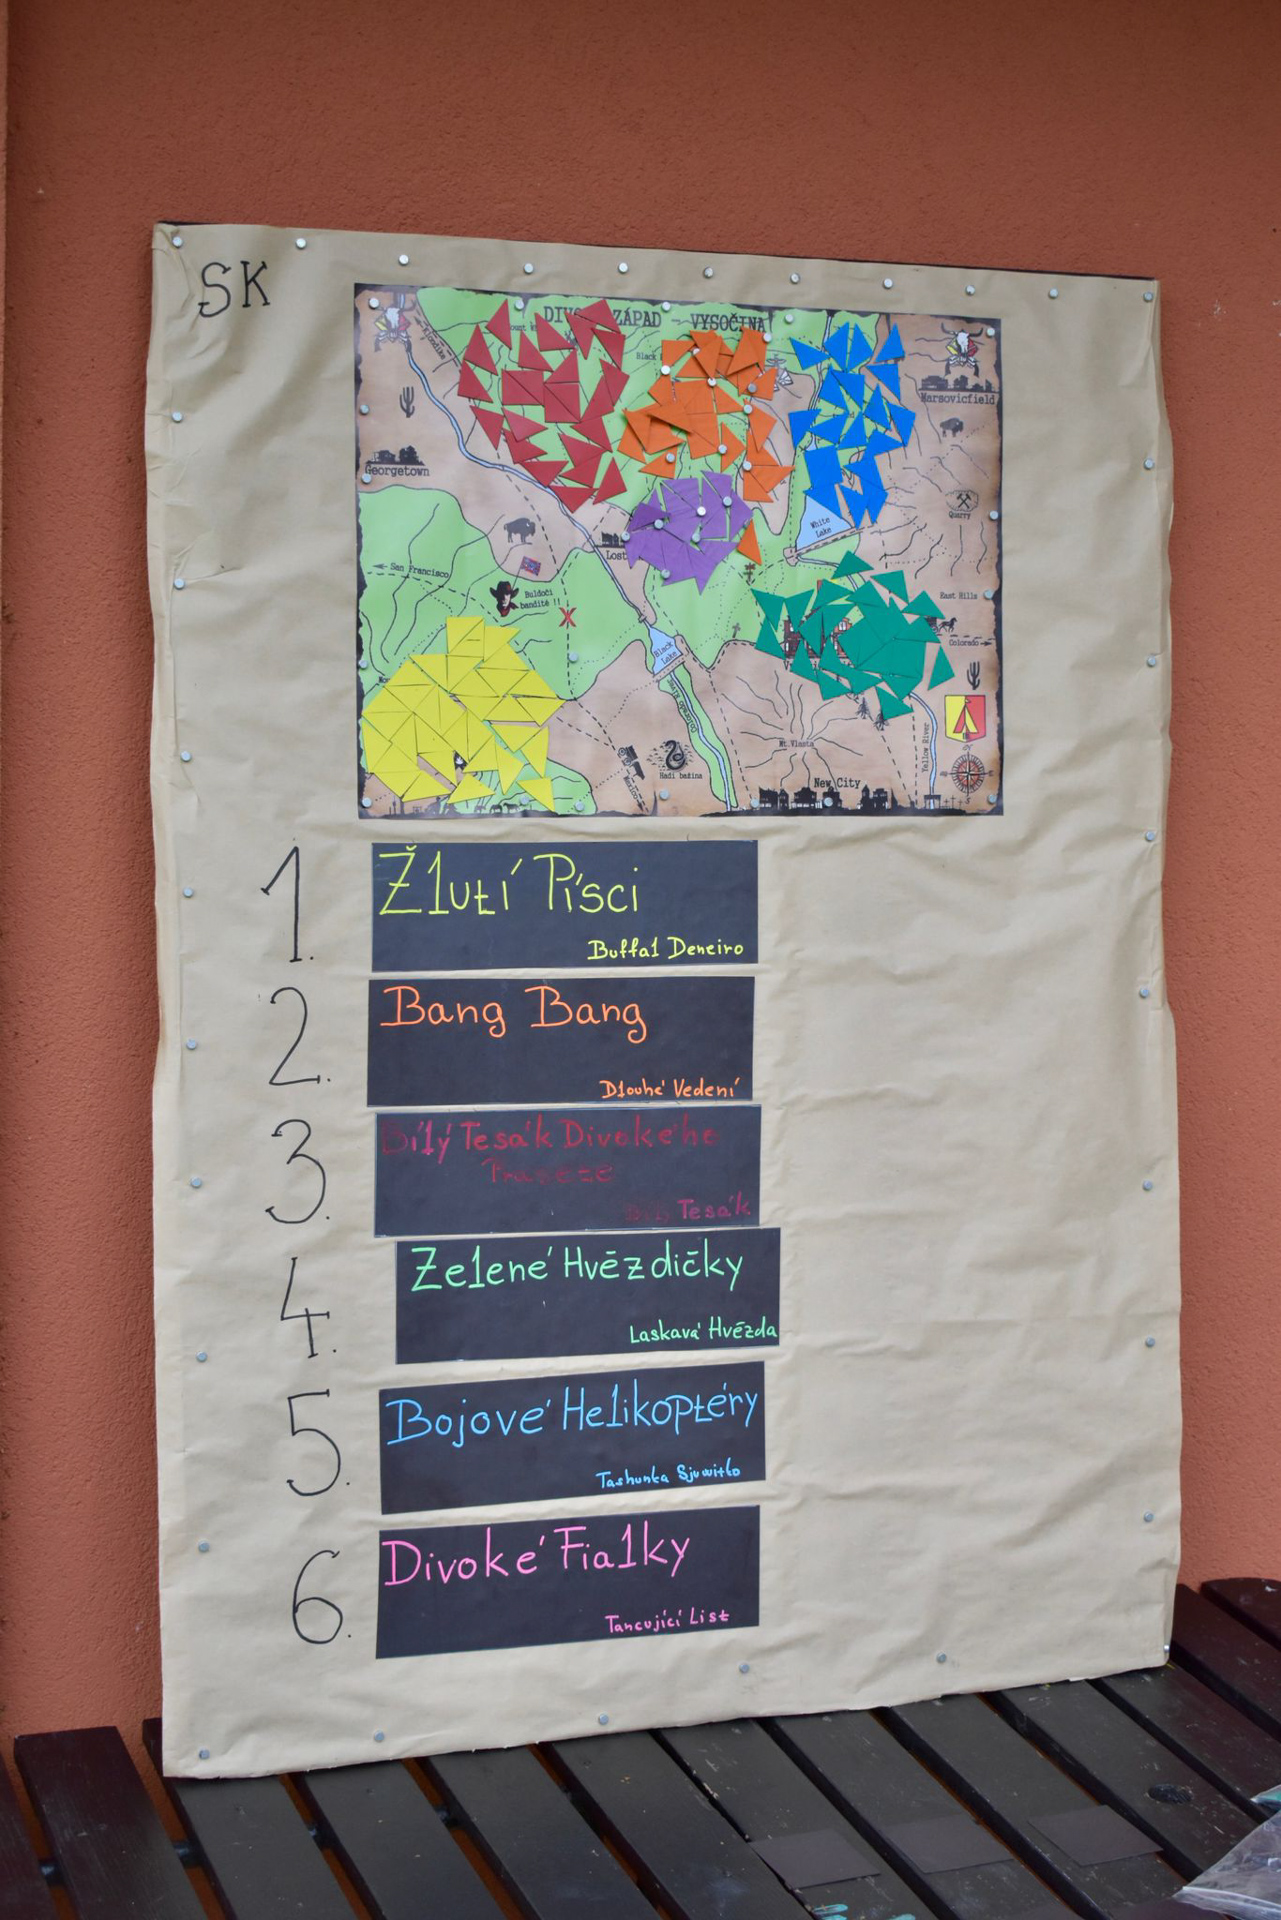 SK
DIVO ZÁPAD - VYSOČINA
Klondike
Black
Marsovicfield
Georgetown
Quarry
White
Lake
Lost
San Francisco
Buldočí
bandité !!
East Hills
Colorado
Black
Lake
Colorado River
Yellow River
Mt.Vlasta
Hadí bažina
New City
1. Žlutí Písci
Buffal Deneiro
2. Bang Bang
Dlouhé Vedení
3. Bílý Tesák Divokého
Bílý Tesák
4. Zelené Hvězdičky
Laskavá Hvězda
5. Bojové Helikoptéry
Tashunka
6. Divoké Fialky
Tancující List